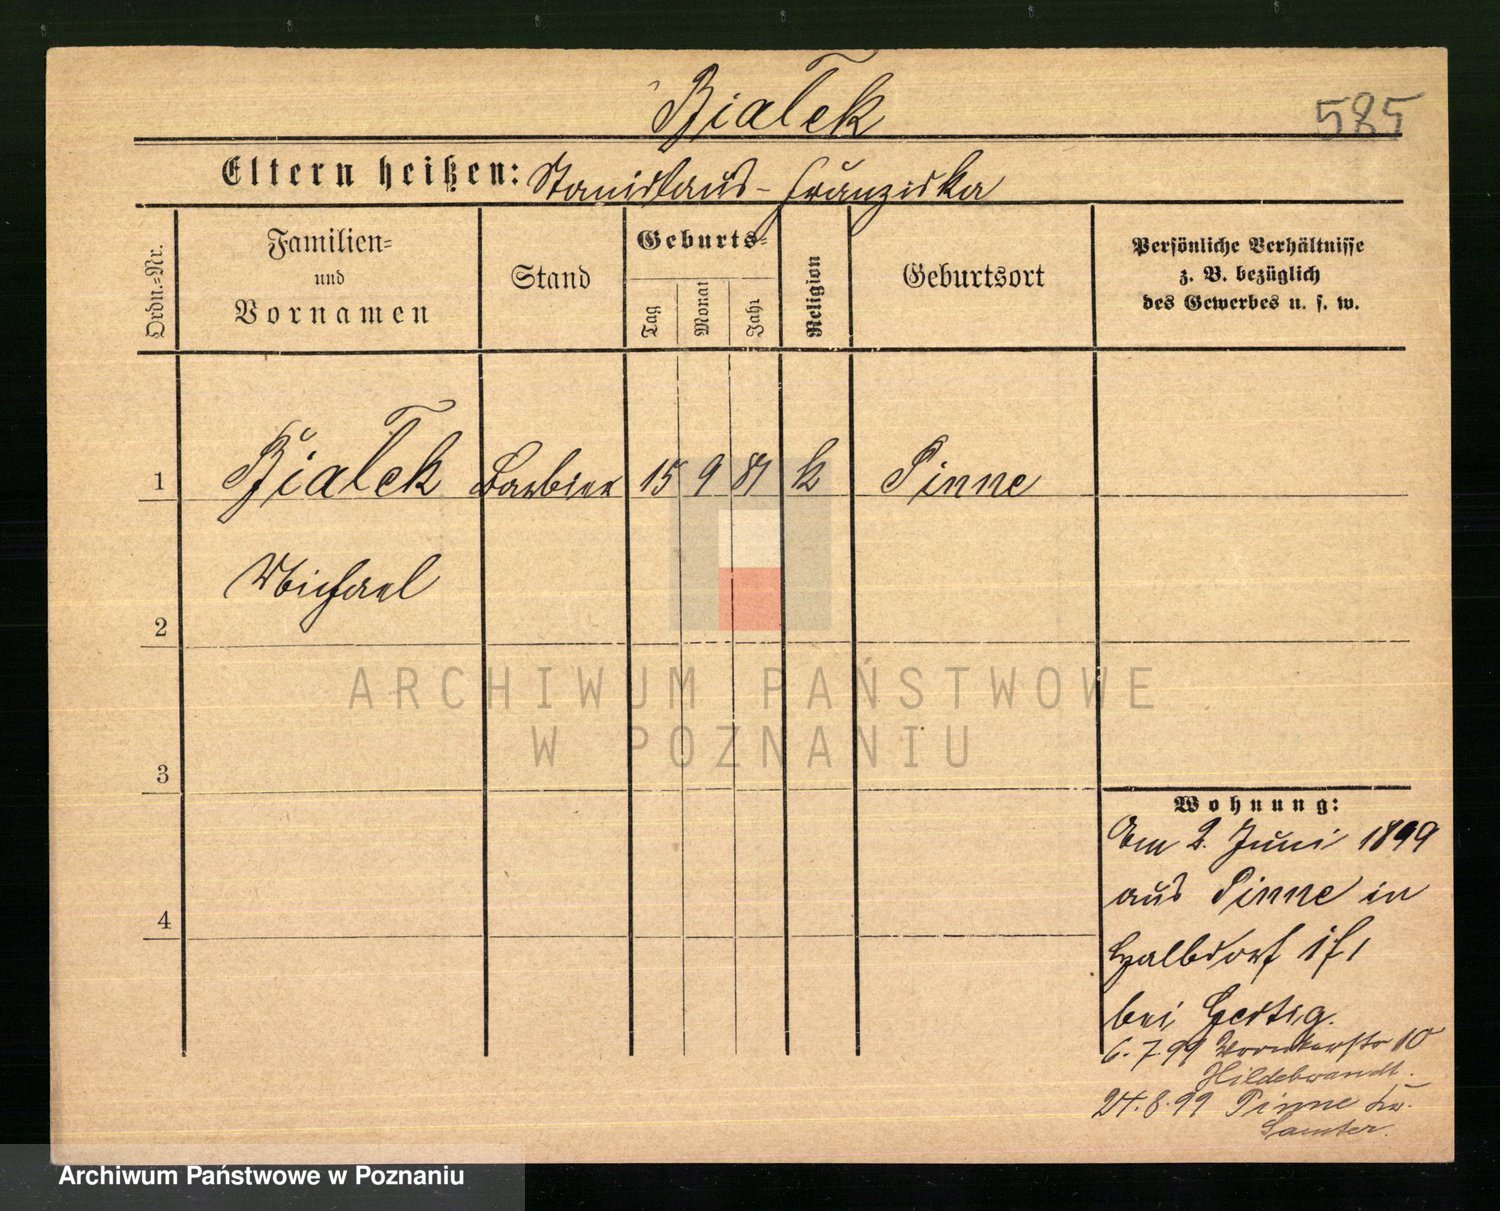 Białek
585
Eltern heißen: Stanislaus - Franziska
Ordn.=Nr.
Familien=
und
Vornamen
Stand
Geburts=
Tag
Monat
Jahr
Religion
Geburtsort
Persönliche Verhältnisse
z. B. bezüglich
des Gewerbes u. s. w.
1 Białek Barbier 15 9 81 k Pinne
Michael
2
3
4
ARCHIWUM PAŃSTWOWE
W POZNANIU
Wohnung:
Am 2. Juni 1899
aus Pinne in
Halbdorf
bei
6.7.99 10
Hildebrandt.
24.8.99 Pinne Kr.
Samter.
Archiwum Państwowe w Poznaniu